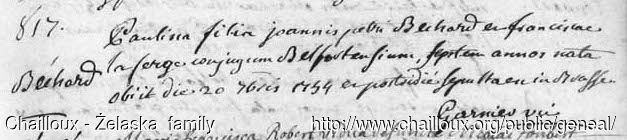 817.
Paulina filia joannis petri Bechard et franciscae
Béchard
la ferge conjugum Belfortensium, septem annos nata
obiit die 20 7bris 1754 et postridie sepulta est in Brasse
Garnier vic
Chailloux - Żelaska family http://www.chailloux.org/public/geneal/